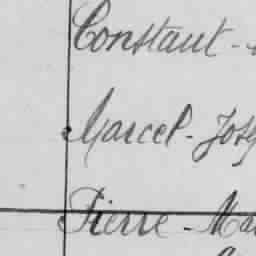 Constant -
Marcel - Jos
Pierre - Ma